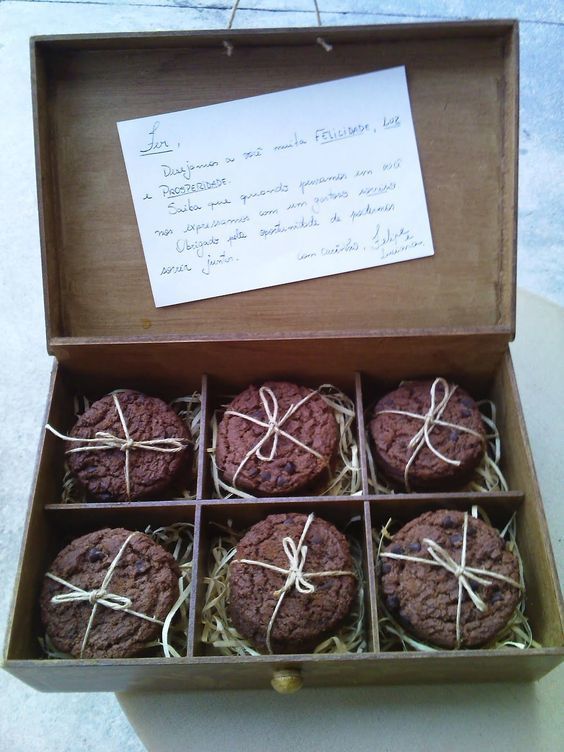 Fer,
Desejamos a você muita FELICIDADE, LUZ
e PROSPERIDADE.
Saiba que quando pensamos em você
nos expressamos com um gostoso sorriso
Obrigado pela oportunidade de podermos
sorrir juntos.
com carinho, Felipe